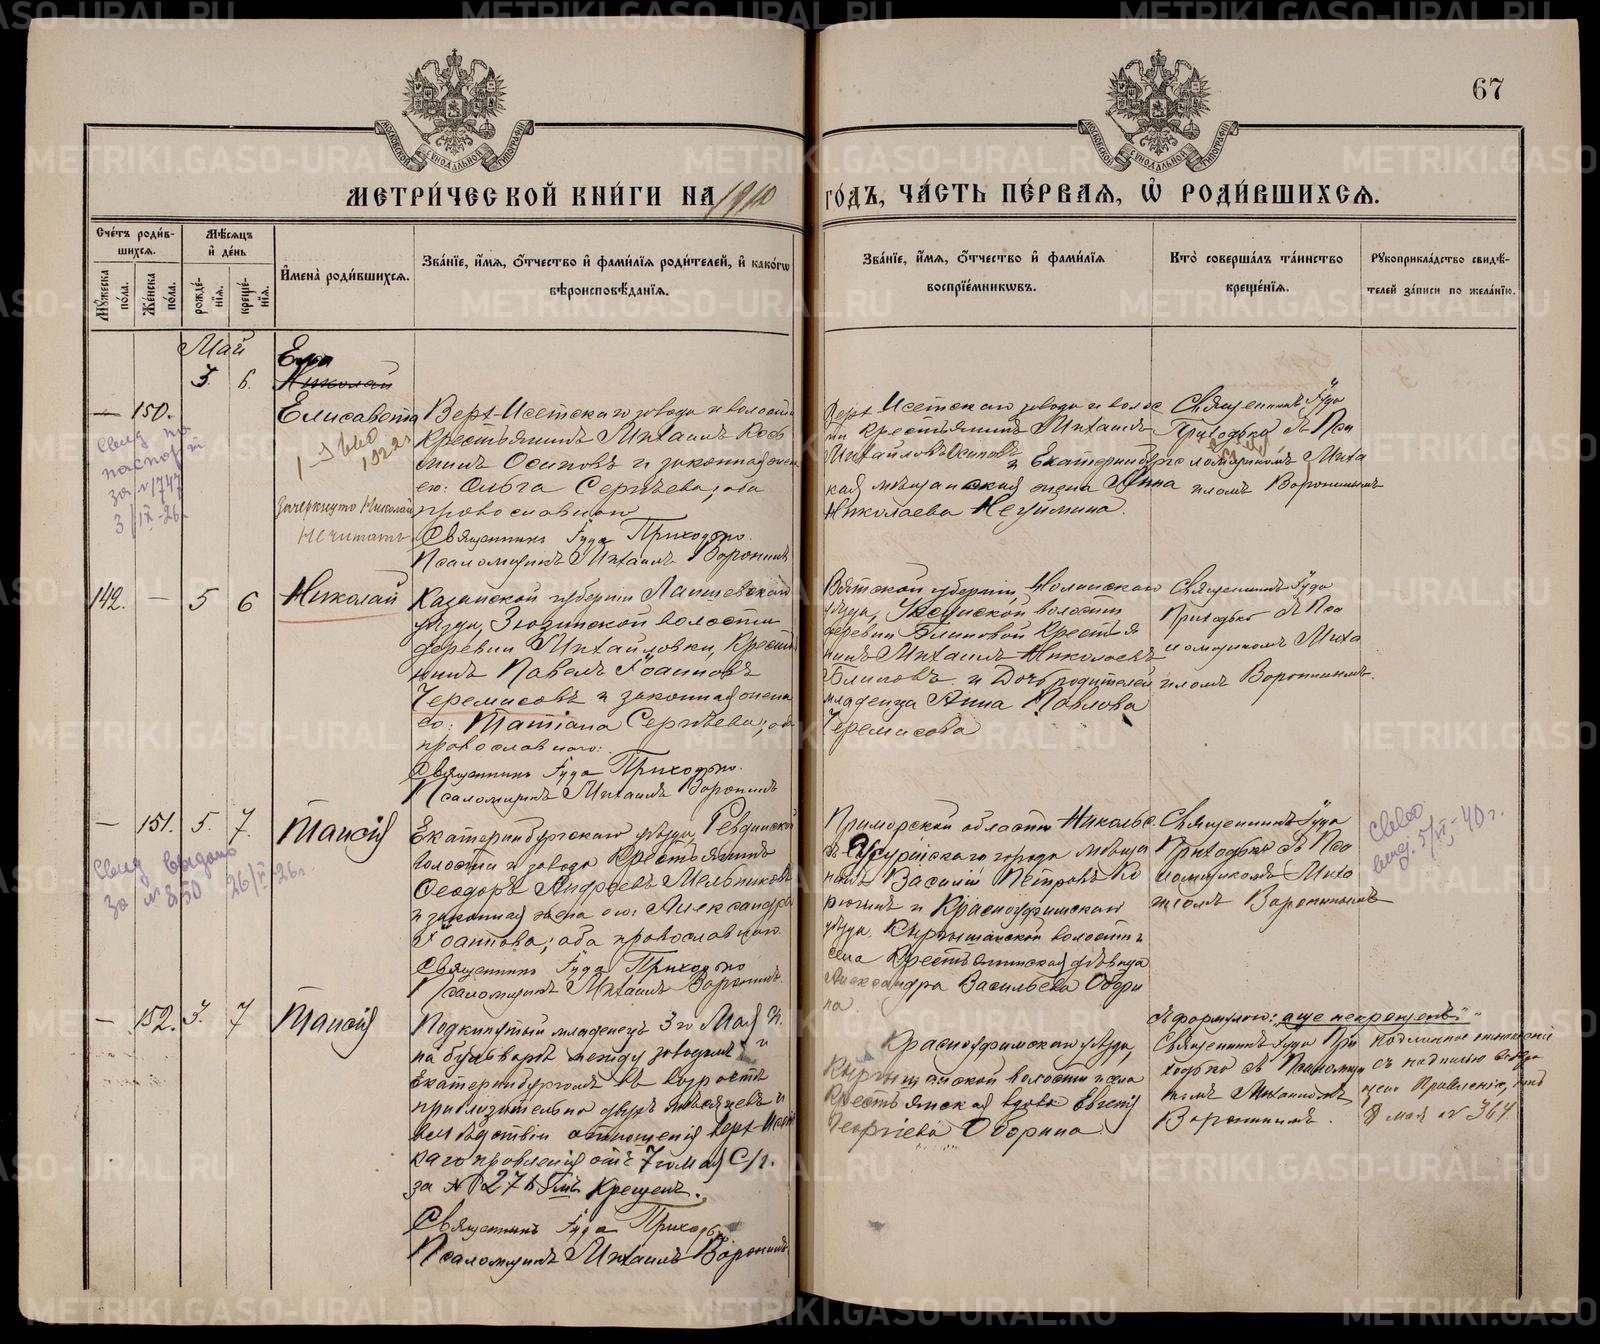 67
МЕТРИ́ЧЕСКОЙ КНИ́ГИ НА 1910
ГО́ДЪ, ЧА́СТЬ ПЕ́РВАѦ, Ѡ҆ РОДИ́ВШИХСѦ.
Сче́тъ роди́в-
шихсѧ.
Мꙋ́жеска
по́ла.
Же́нска
по́ла.
Мѣ́сѧцъ
и҆ де́нь
рожде́-
нїѧ.
креще́-
нїѧ.
И҆мена̀ роди́вшихсѧ.
Зва́нїе, и҆́мѧ, ѻ҆́тчество и҆ фами́лїѧ роди́телей, и҆ како́гѡ
вѣроисповѣ́данїѧ.
Зва́нїе, и҆́мѧ, ѻ҆́тчество и҆ фами́лїѧ
воспрїе́мникѡвъ.
Кто̀ соверша́лъ та́инство
креще́нїѧ.
Рꙋкоприкла́дство свидѣ́-
телей за́писи по жела́нїю.
Май
3 6.
Николай
— 150.
Елисавета
Верх-Исетскаго завода и волости
крестьянинъ Михаилъ
Осиповъ и законная жена
его: Ольга Сергѣева; оба
православнаго
Священникъ Іуда Приходько.
Псаломщикъ Михаилъ Воронинъ
Верх Исетскаго завода и волос
ти крестьянинъ Михаилъ
Михайловъ Осиповъ и Екатеринбургс
кая мѣщанская жена Анна
Николаева
Священникъ Іуда
Приходько съ Пса
ломщикомъ Миха
иломъ Воронинымъ
1922г
Свид по
паспорт
за №1747
3/IX-26г.
Зачеркнуто Николай
не читать
142. — 5 6
Николай
Казанской губерніи Лаишевскаго
уѣзда, Зюзинской волости
деревни Михайловки, Кресть
нинъ Павелъ Іоанновъ
Черемисовъ и законная жена
его: Татіана Сергѣева; оба
православнаго:
Священникъ Іуда Приходько.
Псаломщикъ Михаилъ Воронинъ
Вятской губерніи, Нолинскаго
уѣзда, волости
деревни Блиновой Крестья
нинъ Михаилъ Николаевъ
Блиновъ и Дочь родителей
младенца Анна Павлова
Черемисова
Священникъ Іуда
Приходько съ Пса
ломщикомъ Миха
иломъ Воронинымъ.
— 151. 5. 7.
Таисія
Свид выдано
за № 850 26/IX-26г.
Екатеринбургскаго уѣзда, Ревдинской
волости и завода Крестьянинъ
Ѳеодоръ Андреевъ Мельниковъ
и законная жена его: Александра
Іоаннова; оба православнаго.
Священникъ Іуда Приходько
Псаломщикъ Михаилъ Воронинъ.
Приморской области Никольс
къ Уссурійскаго города мѣща
нинъ Василій Петровъ Ко
рюкинъ и Красноуфимскаго
уѣзда, Кыртышанской волости и
села Крестьянская дѣвица
Александра Васильева Обори
на.
Священникъ Іуда
Приходько съ Пса
ломщикомъ Миха
иломъ Воронинымъ
выд. 5/VI-40 г.
— 152. 3. 7
Таисія
Подкинутый младенецъ 3го Мая н.
на бульварѣ между заводомъ и
Екатеринбургомъ въ возрастѣ
приблизительно двухъ мѣсяцевъ и
вслѣдствіи отношенія Верх-Исетс
каго правленія отъ 7го Мая С/г.
Крещенъ.
Священникъ Іуда Приходько
Псаломщикъ Михаилъ Воронинъ
Красноуфимскаго уѣзда,
волости и села
Крестьянская вдова Евгенія
Георгіева Оборина.
Съ формулою: "аще некрещенъ"
Священникъ Іуда При
ходько съ Псаломщи
комъ Михаиломъ
Воронинымъ.
Подлинное отношеніе
съ надписью
правленія, отъ
8 мая № 364